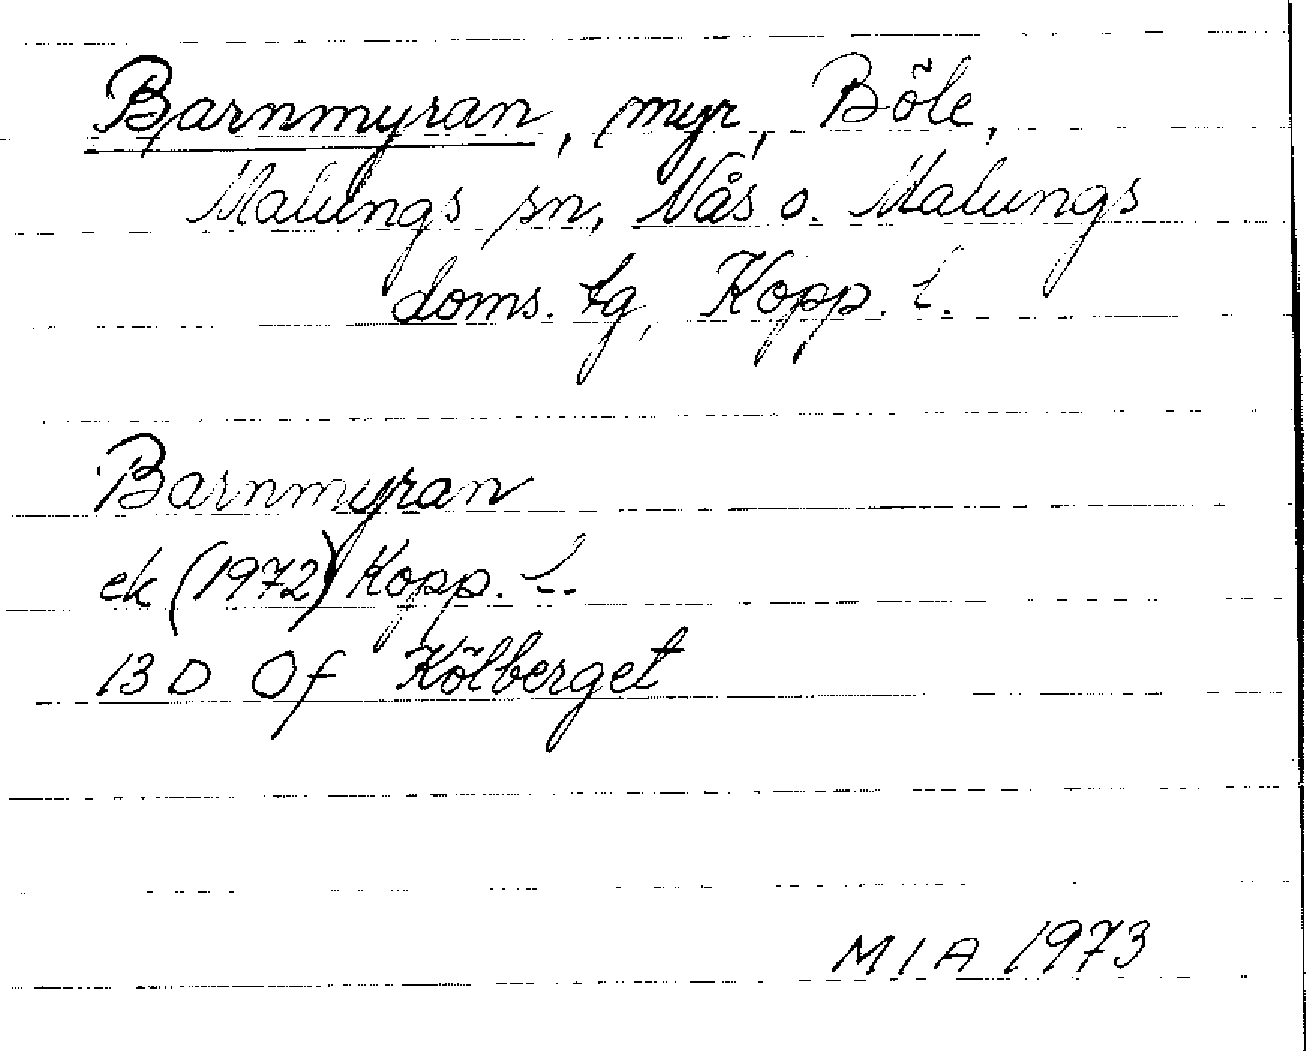 Barnmyran, myr, Böle,
Malungs sn, Nås o. Malungs
doms. tg, Kopp. l.
Barnmyran
ek (1972) Kopp. l.
13 D 0f Kölberget
MIA 1973